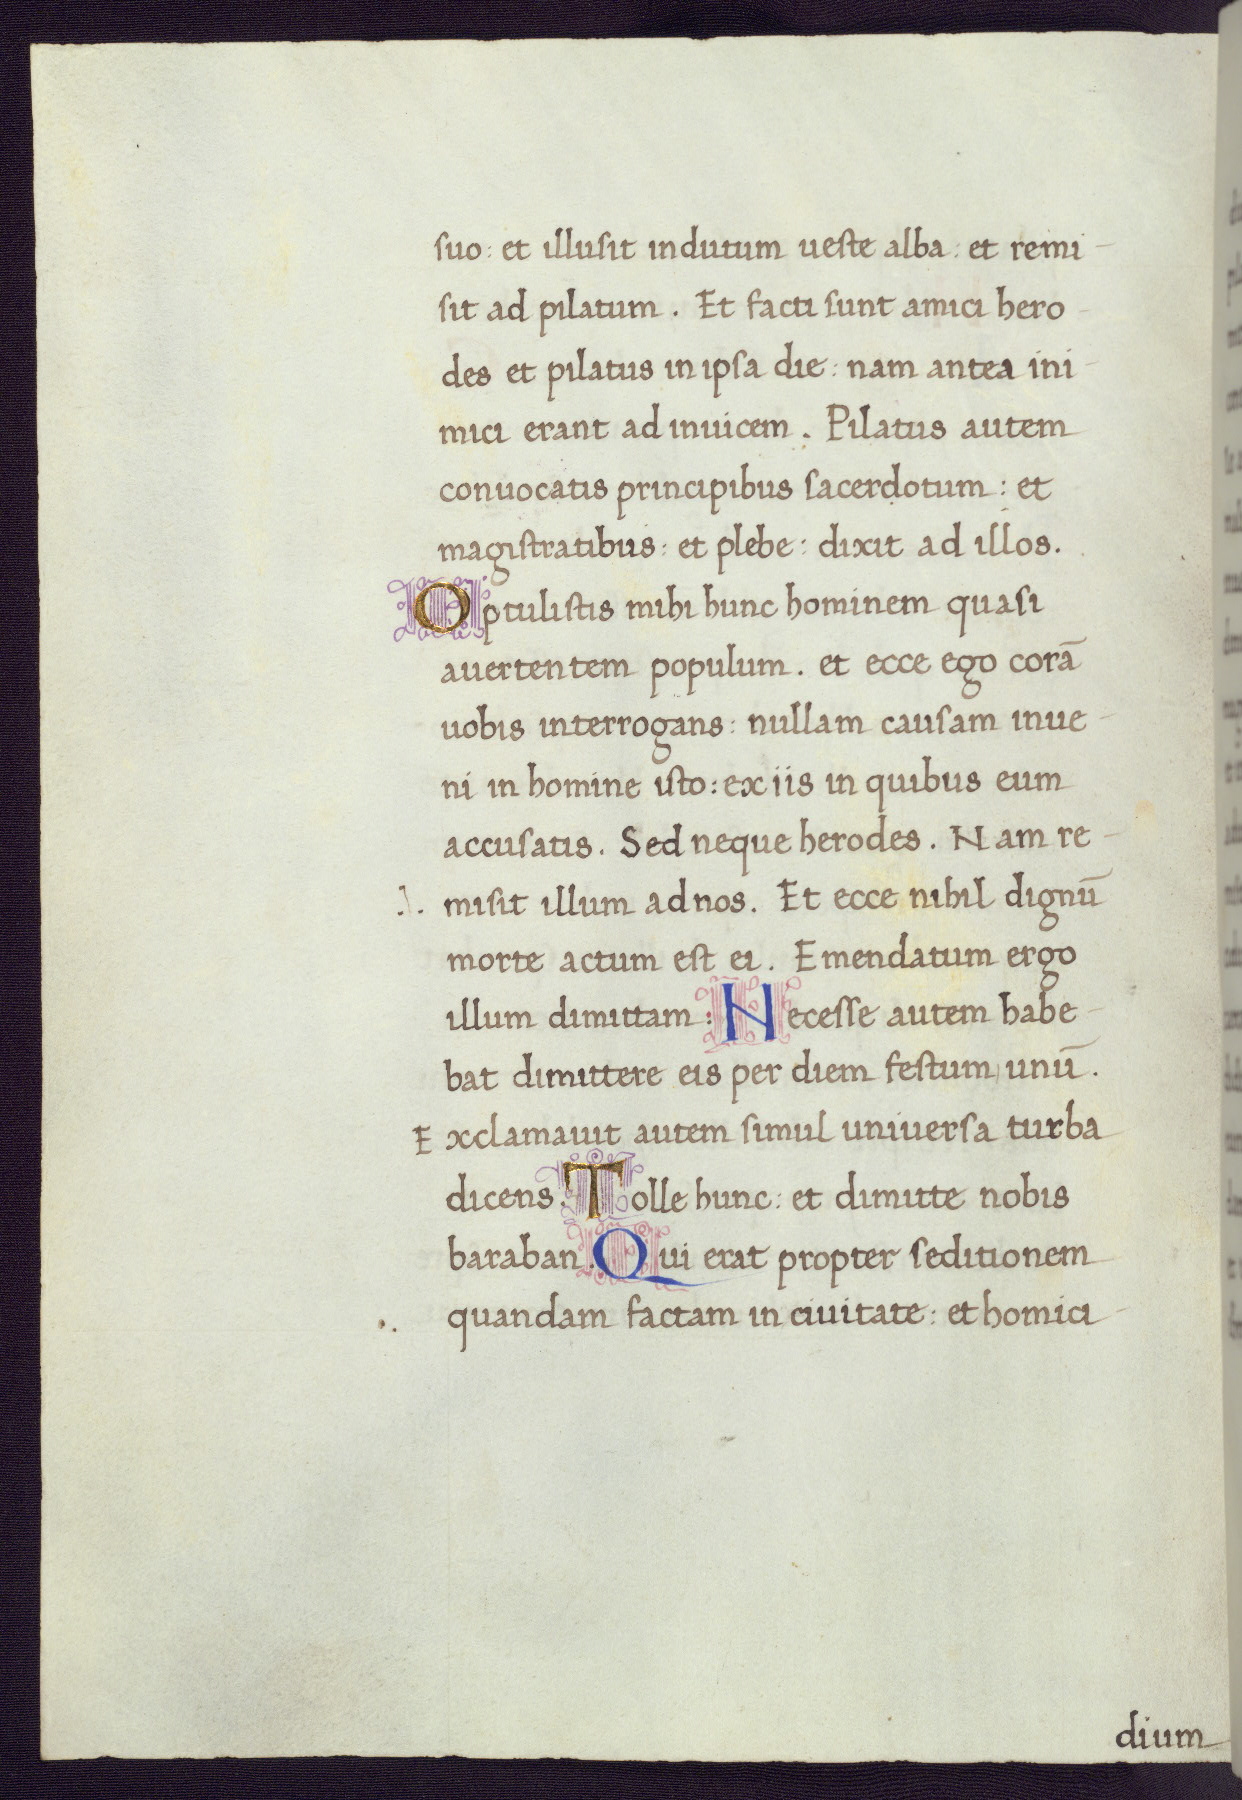 suo: et illusit indutum ueste alba: et remi-
sit ad pilatum. Et facti sunt amici hero-
des et pilatus in ipsa die: nam antea ini-
mici erant ad inuicem. Pilatus autem
conuocatis principibus sacerdotum: et
magistratibus: et plebe: dixit ad illos.
Optulistis mihi hunc hominem quasi
auertentem populum. et ecce ego corā
uobis interrogans: nullam causam inue-
ni in homine isto: ex iis in quibus eum
accusatis. Sed neque herodes. Nam re-
misit illum ad nos. Et ecce nihil dignū
morte actum est ei. Emendatum ergo
illum dimittam: Necesse autem habe-
bat dimittere eis per diem festum unū.
Exclamauit autem simul uniuersa turba
dicens. Tolle hunc: et dimitte nobis
baraban. Qui erat propter seditionem
quandam factam in ciuitate: et homici-
dium